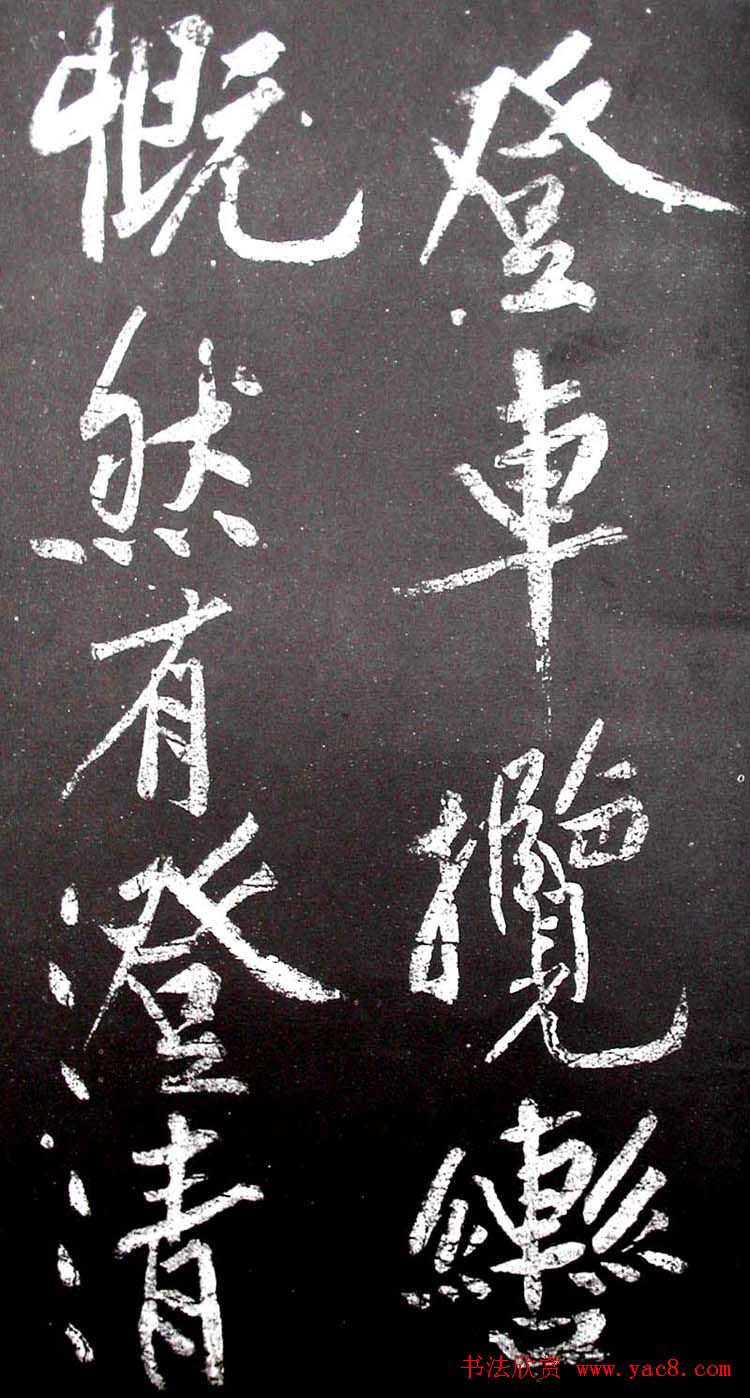 登車攬轡
慨然有澄清
书法欣赏 www.yac8.com